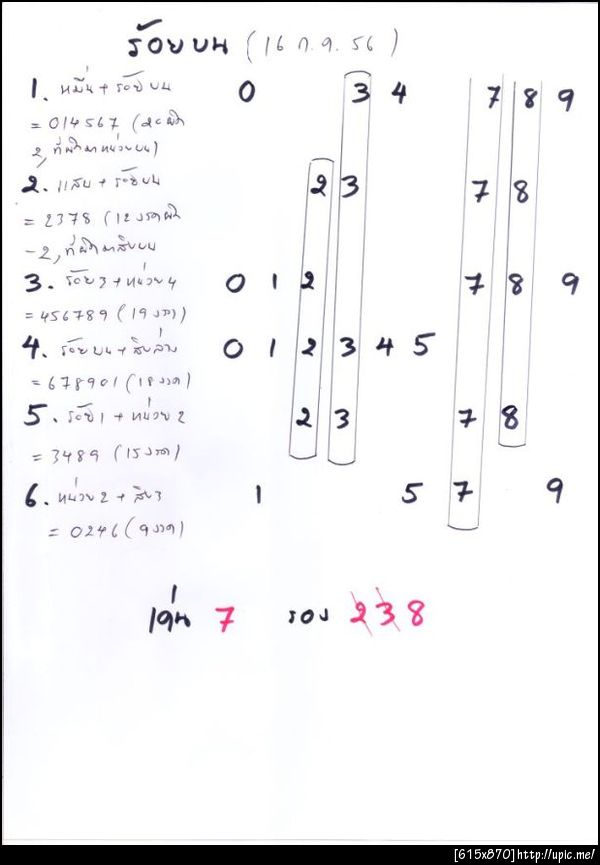 ร้อยบน (16 ก.ย. 56)
1. หมื่น + ร้อยบน 0 3 4 7 8 9
= 014567 (20
2, ที่ผิดมาหน่วยบน)
2. แสน + ร้อยบน 2 3 7 8
= 2378 (12 งวดผิด
-2, ที่ผิดมาสิบบน
3. ร้อย 3 + หน่วย 4 0 1 2 7 8 9
= 456789 (19 งวด)
4. ร้อยบน + สิบล่าง 0 1 2 3 4 5
= 678901 (18 งวด)
5. ร้อย 1 + หน่วย 2 2 3 7 8
= 3489 (15 งวด)
6. หน่วย 2 + สิบ 3 1 5 7 9
= 0246 (9 งวด)
เด่น 7 รอง 2 3 8
[615x870]http://upic.me/